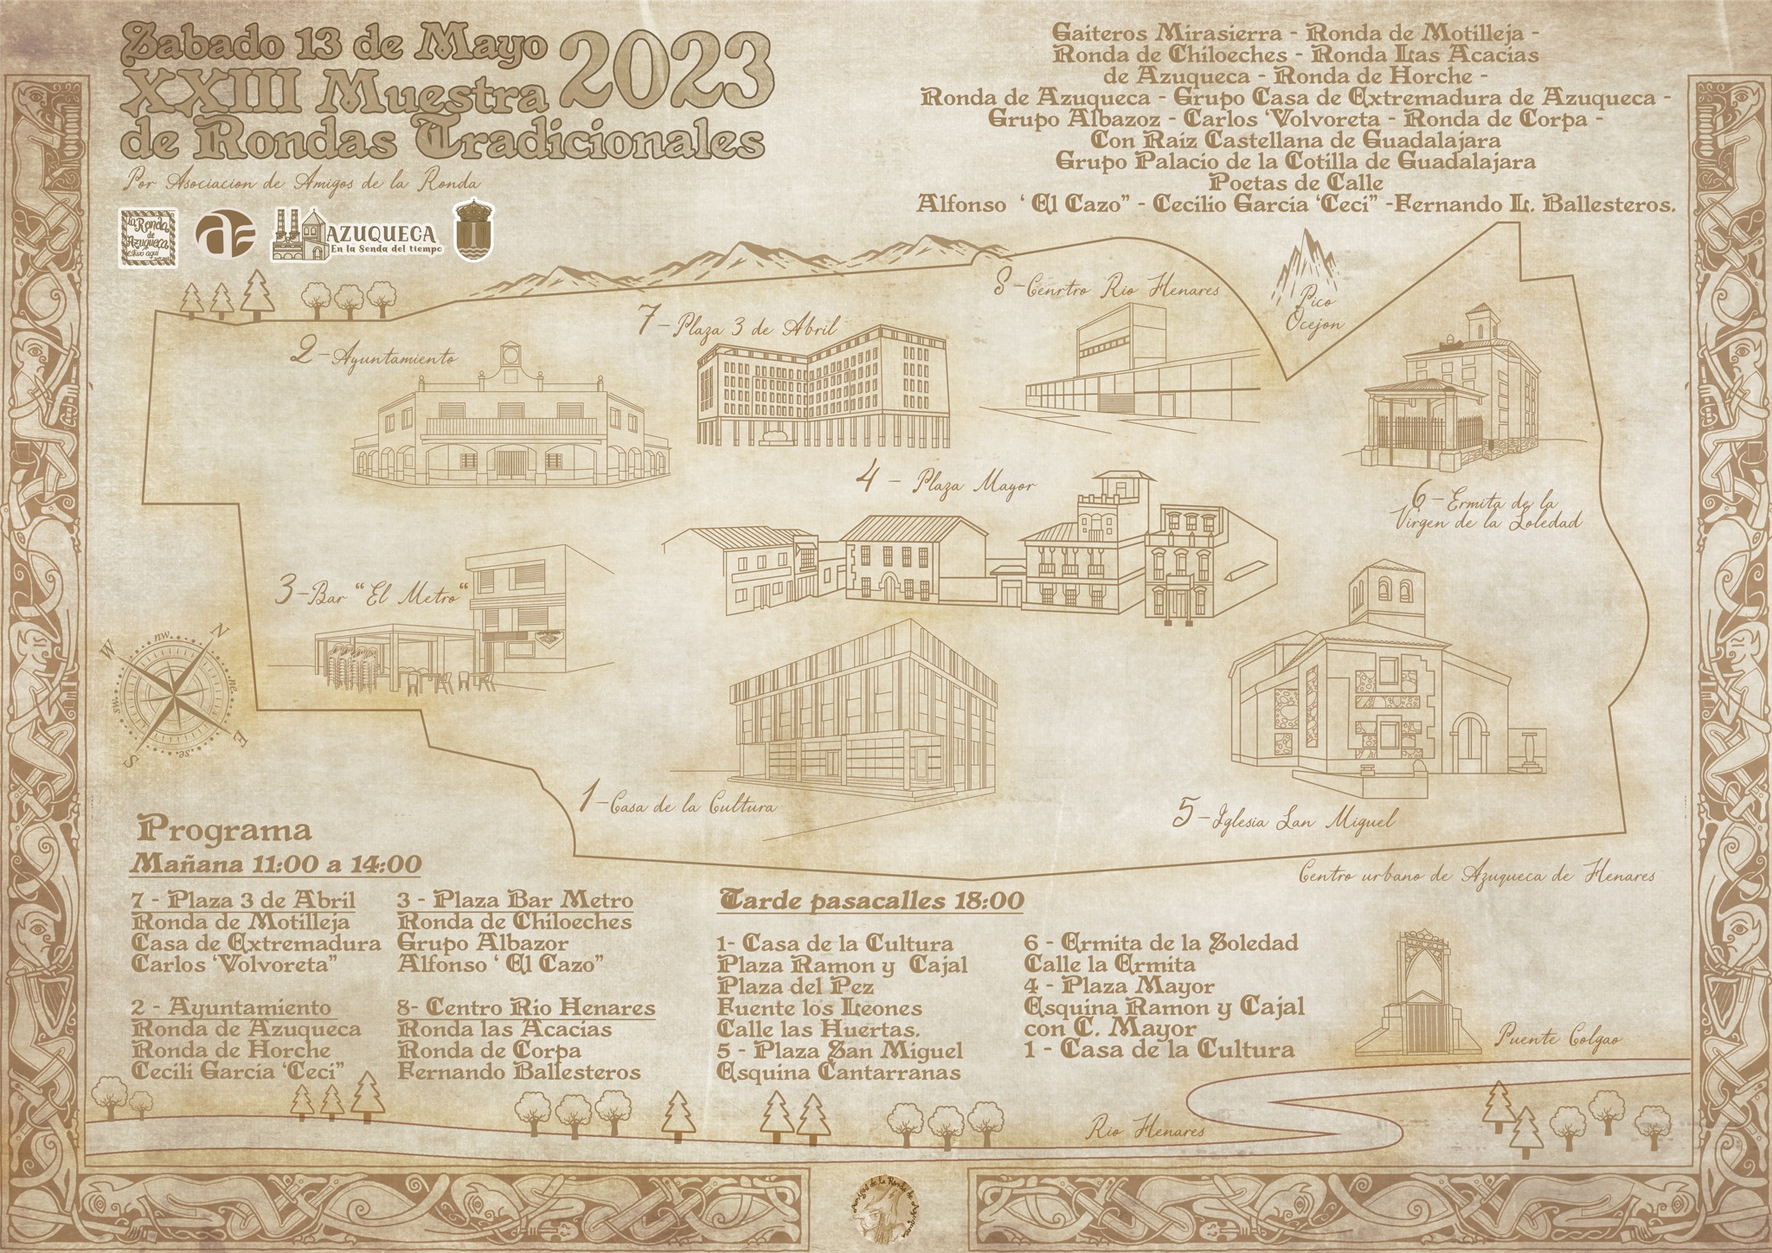 Sabado 13 de Mayo 2023
XXIII Muestra
de Rondas Tradicionales
Por Asociacion de Amigos de la Ronda
la Ronda
de
Azuqueca
ae
AZUQUECA
En la Senda del tiempo
Gaiteros Mirasierra - Ronda de Motilleja -
Ronda de Chiloeches - Ronda Las Acacias
de Azuqueca - Ronda de Horche -
Ronda de Azuqueca - Grupo Casa de Extremadura de Azuqueca -
Grupo Albazoz - Carlos ‘Volvoreta - Ronda de Corpa -
Con Raiz Castellana de Guadalajara
Grupo Palacio de la Cotilla de Guadalajara
Poetas de Calle
Alfonso ‘ El Cazo” - Cecilio Garcia ‘Ceci” -Fernando L. Ballesteros.
8-Cenrtro Rio Henares
Pico
Ocejon
7-Plaza 3 de Abril
2-Ayuntamiento
4 - Plaza Mayor
6-Ermita de la
Virgen de la Soledad
3-Bar “El Metro“
N
nw.
W
ne.
sw.
E
se.
S
1-Casa de la Cultura
5-Iglesia San Miguel
Centro urbano de Azuqueca de Henares
Programa
Mañana 11:00 a 14:00
7 - Plaza 3 de Abril
Ronda de Motilleja
Casa de Extremadura
Carlos ‘Volvoreta”
2 - Ayuntamiento
Ronda de Azuqueca
Ronda de Horche
Cecili Garcia ‘Ceci”
3 - Plaza Bar Metro
Ronda de Chiloeches
Grupo Albazor
Alfonso ‘ El Cazo”
8- Centro Rio Henares
Ronda las Acacias
Ronda de Corpa
Fernando Ballesteros
Tarde pasacalles 18:00
1- Casa de la Cultura
Plaza Ramon y Cajal
Plaza del Pez
Fuente los Leones
Calle las Huertas.
5 - Plaza San Miguel
Esquina Cantarranas
6 - Ermita de la Soledad
Calle la Ermita
4 - Plaza Mayor
Esquina Ramon y Cajal
con C. Mayor
1 - Casa de la Cultura
Puente Colgao
Rio Henares
Amigos de La Ronda de Azuqueca